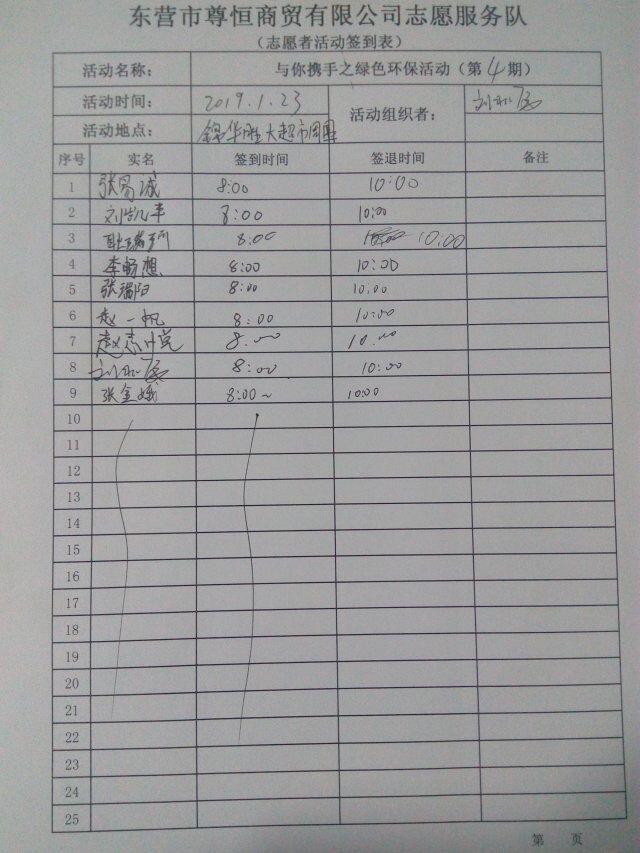 东营市尊恒商贸有限公司志愿服务队
（志愿者活动签到表）
活动名称： 与你携手之绿色环保活动（第4期）
活动时间： 2019.1.23 活动组织者：
活动地点： 锦华胜大超市周围
序号 实名 签到时间 签退时间 备注
1 张易诚 8:00 10:00
2 刘凯丰 8:00 10:00
3 8:00 10:00
4 李畅想 8:00 10:00
5 张瑞阳 8:00 10:00
6 赵一帆 8:00 10:00
7 赵志 8:00 10:00
8 8:00 10:00
9 张金娥 8:00~ 10:00
10
11
12
13
14
15
16
17
18
19
20
21
22
23
24
25
第 页